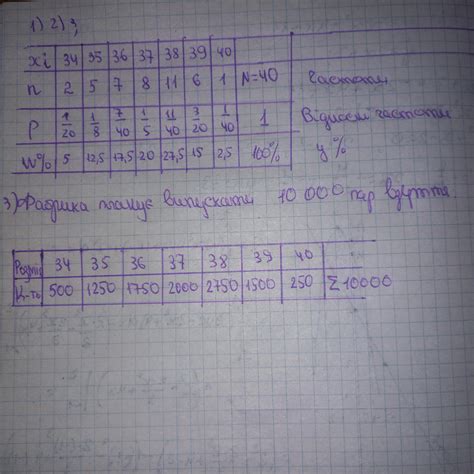 1) 2) 3
xi 34 35 36 37 38 39 40
n 2 5 7 8 11 6 1 N=40 Частоти
P 1/20 1/8 7/40 1/5 11/40 3/20 1/40 1 Відносні частоти
W% 5 12,5 17,5 20 27,5 15 2,5 100% у %
3) Фабрика планує випускати 10 000 пар взуття.
Розмір 34 35 36 37 38 39 40
К-ть 500 1250 1750 2000 2750 1500 250 Σ10000